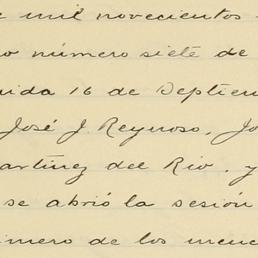 e mil novecientos
o número siete de
uida 16 de Septiem
José J. Reynoso, Jo
artínez del Rio, y
se abrió la sesión
imero de los menc